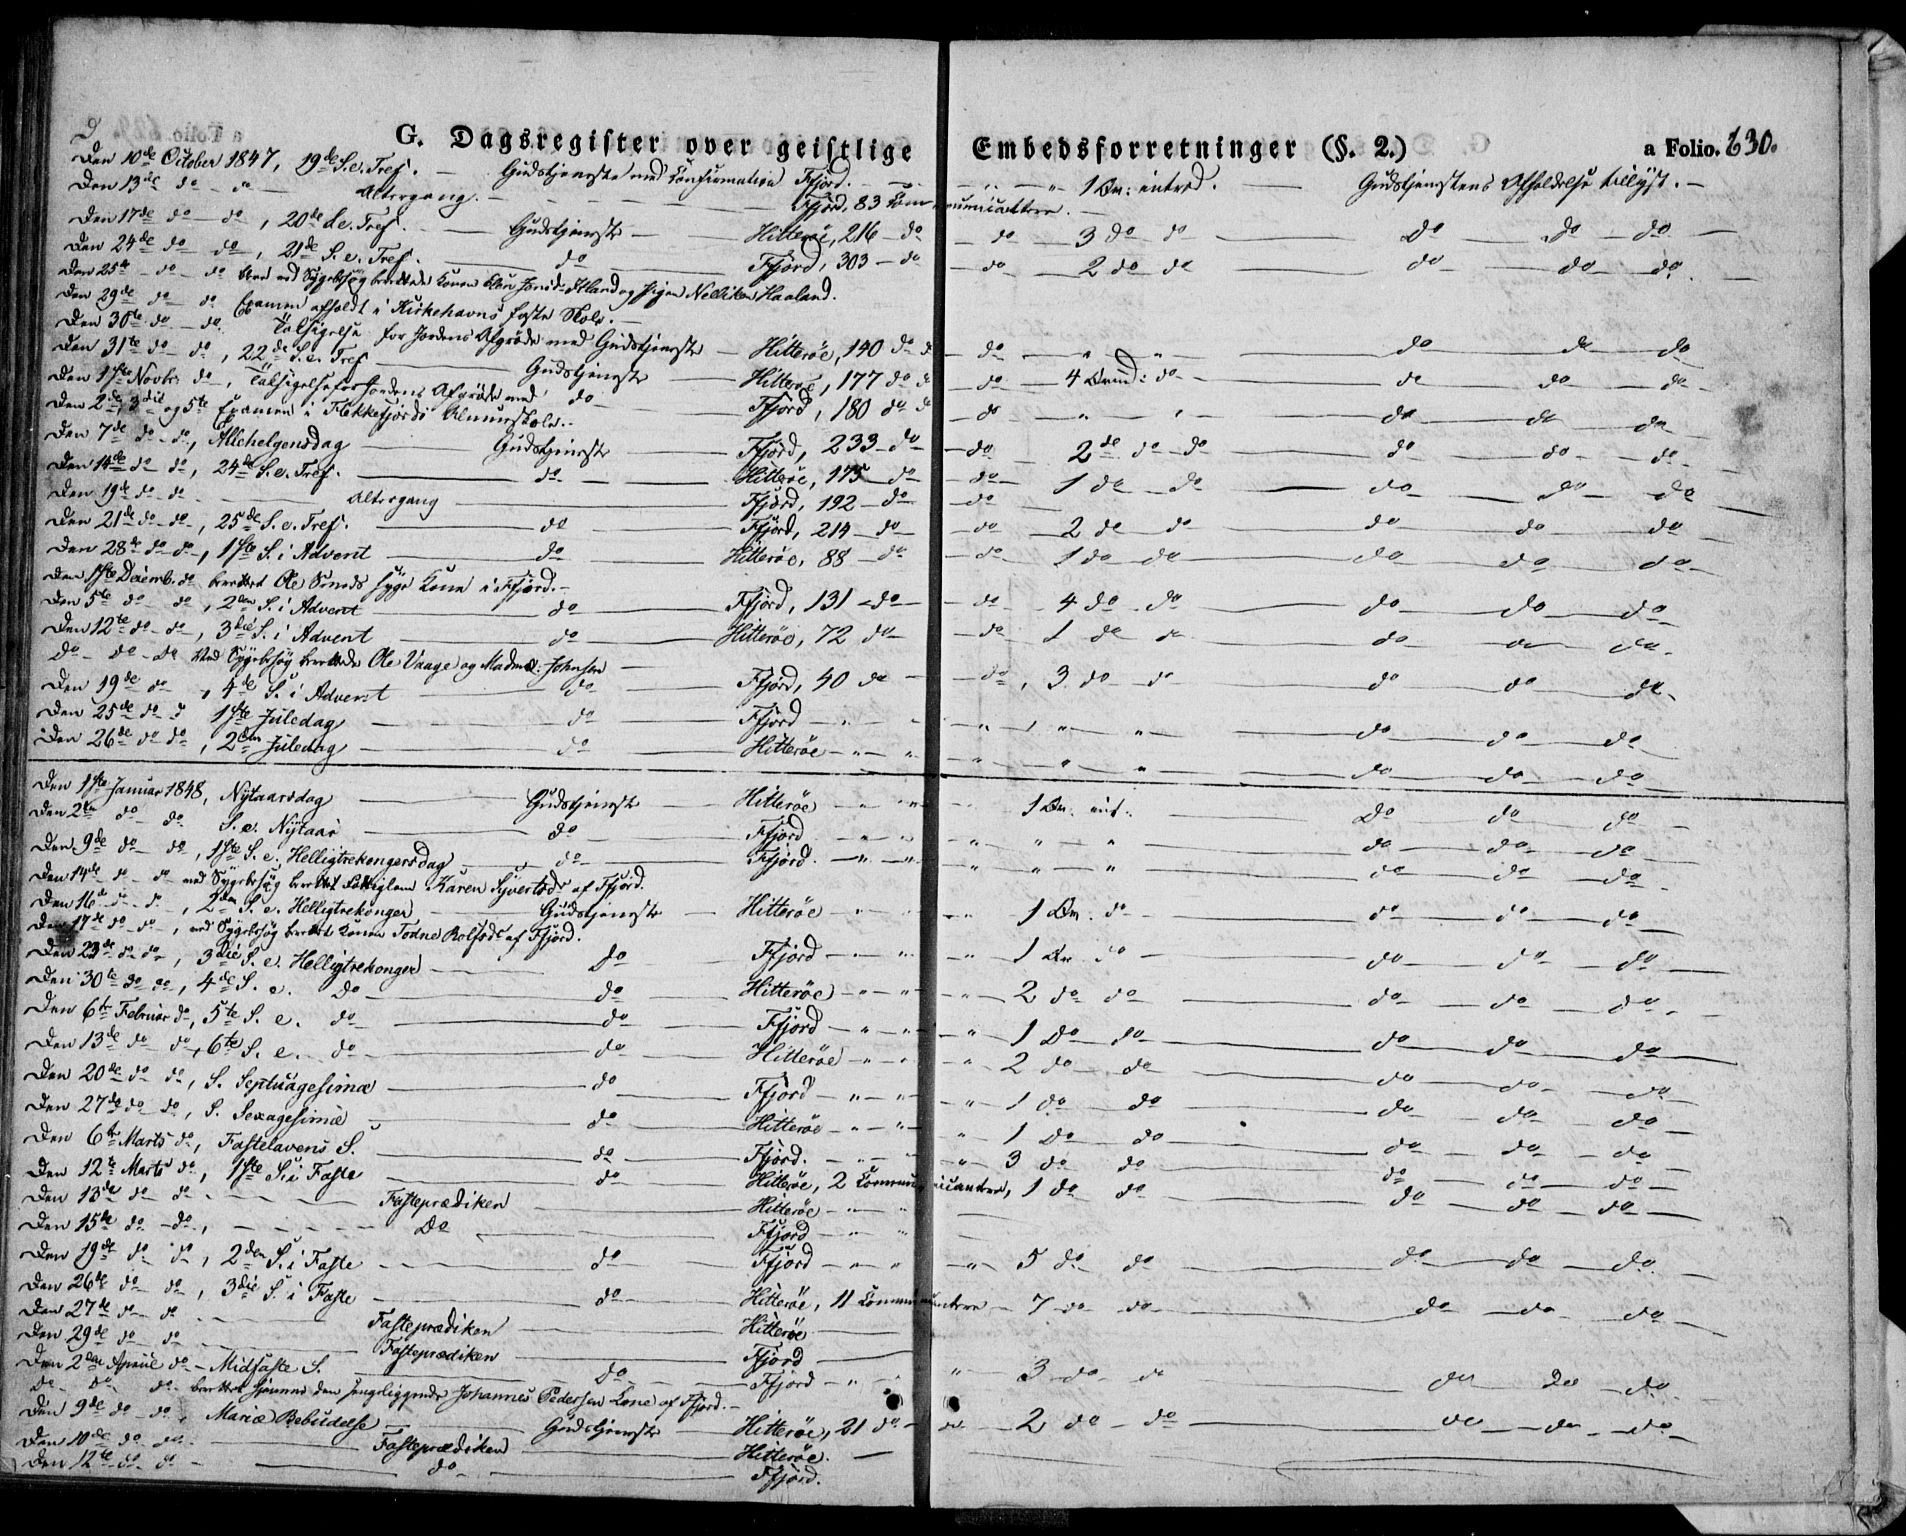 G. Dagsregister over geistlige Embedsforretninger (§. 2.) a Folio. 630.
Den 10de October 1847, 19de S. e. Tref. — Gudstjeneste med Confirmation Ffjord. — " — " 1 Br: introd. — Gudstjenstens Afholdelse tillyst. —
Den 13de do — do — Altergang. — Ffjord, 83 Communicantere. —
Den 17de do — do, 20de S. e. Tref. — Gudstjeneste — Hitterøe, 216 — do — do — 3 do do — Do — Do — do —
Den 24de do — do, 21de S. e. Tref. — do — Ffjord, 303 — do — do — 2 do do — do — do — do
Den 25de — do — do ved Sygebesøg berettede Konen Jonsd. Aaland og Pigen Haaland.
Den 29de do — do Examen afholdt i Kirkehavns faste Skole. —
Den 30te do — do. Taksigelse for Jordens Afgrøde med Gudstjeneste — Hitterøe, 140 do do — do — " — " — do — do — do
Den 31te do — do, 22de S. e. Tref — Gudstjeneste — Hitterøe, 177 do do — do — 4 do — do — do — do —
Den 1ste Novbr. do, Taksigelse for Jordens Afgrøde med do — Ffjord, 180 do do — do — " — " — do — do — do
Den 2de, 3die og 5te Examen i Flekkefjords Almueskole. —
Den 7de do — do, Allehelgensdag — Gudstjeneste — Ffjord, 233 — do — do — 2 do do — do — do — do —
Den 14de do — do, 24de S. e. Tref. — do — Hitterøe, 175 — do — do — 1 do — do — do — do — do
Den 19de do — do — Altergang — Ffjord, 192 — do — do —
Den 21de do — do, 25de S. e. Tref. — do — Ffjord, 214 — do — do — 2 do do — do — do — do
Den 28de do — do, 1ste S. i Advent — do — Hitterøe, 88 — do — do — 1 do do — do — do — do —
Den 1ste Decemb. do berettet Ole syge Kone i Ffjord. —
Den 5te do — do, 2den S. i Advent — do — Ffjord, 131 — do — do — 4 do do — do — do — do —
Den 12te do — do, 3die S. i Advent — do — Hitterøe, 72 do — do — 1 do do — do — do — do —
Do — do — do Ved Sygebesøg berettede Ole Vaage og Madme: Johnsen —
Den 19de do, 4de S. i Advent — do — Ffjord, 40 do — do, 3 do — do — do — do — do —
Den 25de do — do 1ste Juledag — do — Ffjord — " — " — " — " — do — do — do
Den 26de do do, 2den Juledag — do — Hitterøe — " — " — " — " — do — do — do
Den 1ste Januar 1848, Nytaarsdag — Gudstjeneste — Hitterøe — " — " — 1 Br. int: — Do — do — do —
Den 2den do — do S. e. Nytaar — do — Ffjord — " — " — " — " — do — do — do
Den 9de do — do, 1ste S. e. Helligtrekongersdag — do — Ffjord. — " — " — " — " — do — do — do
Den 14de do — do ved Sygebesøg berettet Fattiglem Karen Syvertsdr af Ffjord.
Den 16de do — do, 2den S. e. Helligtrekonger — Gudstjeneste — Hitterøe — " — " — 1 Br. do — do — do — do
Den 17de do — do, ved Sygebesøg berettet Konen Todne Rolfsdr af Ffjord.
Den 23de do do, 3die S. e. Helligtrekonger — Do — Ffjord — " — " — 1 Br do — do — do — do —
Den 30te do do, 4de S. e. Do — do — Hitterøe — " — " — 2 do do — do — do — do —
Den 6te Februar do, 5te S. e. do — do — Ffjord — " — " — 1 Do do — do — do — do
Den 13de do do, 6te S. e. do — do — Hitterøe — " — " — 2 do — do — do — do — do
Den 20de do do, S. Septuagesimæ — do — Ffjord — " — " — 1 do do — do — do — do —
Den 27de do do, S. Sexagesimæ — do — Hitterøe — " — " — 1 Do do — do — do — do —
Den 6te Marts do, Fastelavens S. — do — Ffjord. — " — " — 3 do do — do — do — do —
Den 12te Marts do, 1ste S. i Faste — do — Hitterøe, 2 Communicantere, 1 do do — do — do — do
Den 13de do — do — Fasteprædiken — Hitterøe — " — "
Den 15de do — do, — Do — Ffjord — " — "
Den 19de do do, 2den S. i Faste — do — Ffjord — " — " — 5 do do — do — do — do
Den 26de do do, 3die S. i Faste — do — Hitterøe, 11 Communicantere — 7 do do — do — do — do
Den 27de do — do — Fasteprædiken — Hitterøe —
Den 29de do — do — Fasteprædiken — Ffjord —
Den 2den April do — Midfaste S. — do — Ffjord — " — " — 3 do — do — do — do — do
Do — do — do. berettet hjemme den sengeliggende Johannes Pedersens Kone af Ffjord. —
Den 9de do — do, Mariæ Bebudelse — Gudstjeneste — Hitterøe, 21 do — do — 2 do — do — do — do — do —
Den 10de do do. — Fasteprædiken — Hitterøe. —
Den 12te do do — do — Ffjord.